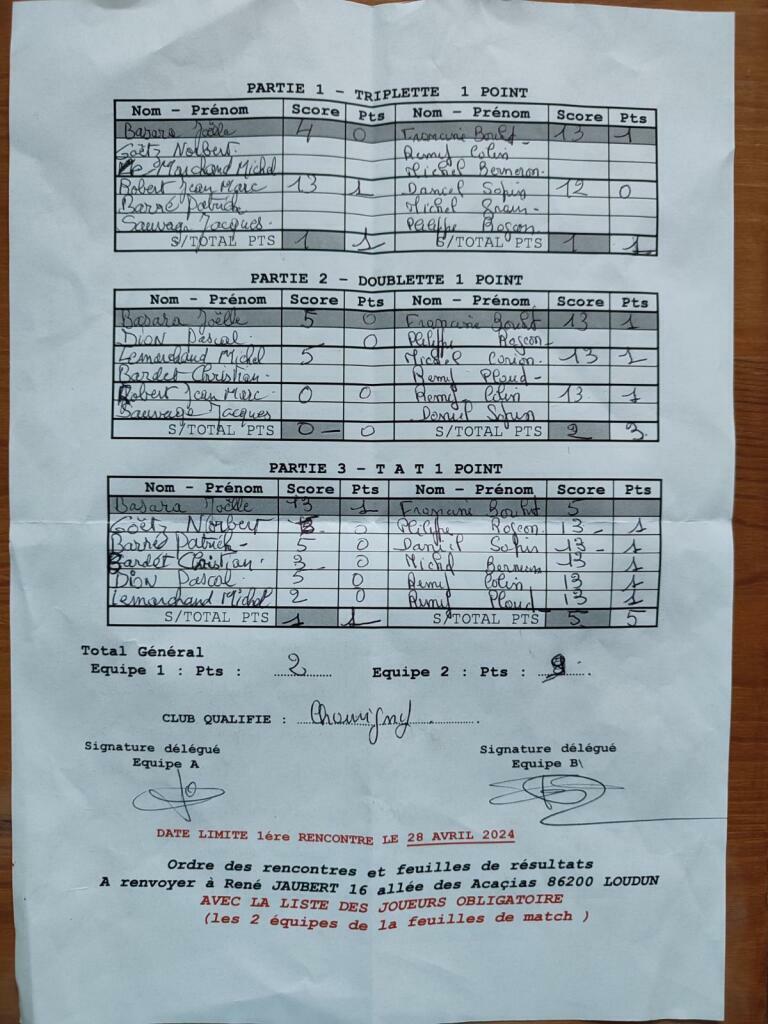 PARTIE 1 - TRIPLETTE 1 POINT
Nom - Prénom Score Pts Nom - Prénom Score Pts
Basara Joëlle 4 0 Francine 13 1
Goëtz Norbert Remy Colin
Le Marchand Michel Michel
Robert Jean Marc 13 1 Daniel 12 0
Barré Patrick Michel
Sauvage Jacques Philippe
S/TOTAL PTS 1 1 S/TOTAL PTS 1 1
PARTIE 2 - DOUBLETTE 1 POINT
Nom - Prénom Score Pts Nom - Prénom Score Pts
Basara Joëlle 5 0 Francine 13 1
Dion Pascal 0 Philippe
Lemarchand Michel 5 Michel 13 1
Bardet Christian Remy
Robert Jean Marc 0 0 Remy Colin 13 1
Sauvage Jacques Daniel
S/TOTAL PTS 0 0 S/TOTAL PTS 2 3
PARTIE 3 - T A T 1 POINT
Nom - Prénom Score Pts Nom - Prénom Score Pts
Basara Joëlle 13 1 Francine 5
Goëtz Norbert 0 Philippe 13 1
Barré Patrick 5 0 Daniel 13 1
Bardet Christian 3 0 Michel 13 1
Dion Pascal 5 0 Remy Colin 13 1
Lemarchand Michel 2 0 Remy 13 1
S/TOTAL PTS 1 1 S/TOTAL PTS 5 5
Total Général
Equipe 1 : Pts : 2 Equipe 2 : Pts :
CLUB QUALIFIE : Chauvigny
Signature délégué Signature délégué
Equipe A Equipe B
DATE LIMITE 1ére RENCONTRE LE 28 AVRIL 2024
Ordre des rencontres et feuilles de résultats
A renvoyer à René JAUBERT 16 allée des Acaçias 86200 LOUDUN
AVEC LA LISTE DES JOUEURS OBLIGATOIRE
(les 2 équipes de la feuilles de match )